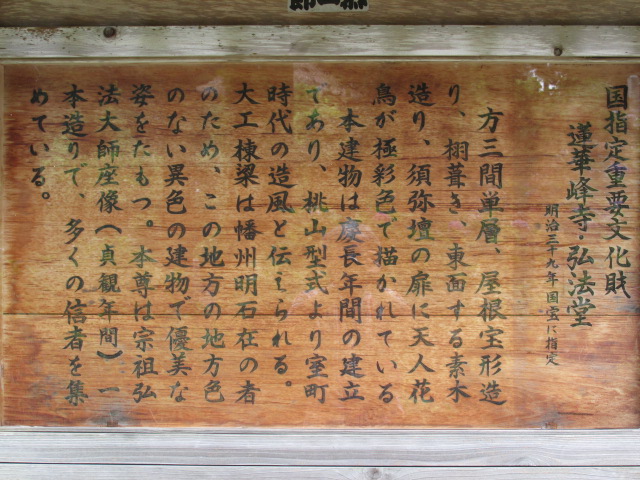 国指定重要文化財
蓮華峰寺・弘法堂
明治三十九年国宝に指定
方三間単層、屋根宝形造
り、栩葺き、東面する素木
造り、須弥壇の扉に天人花
鳥が極彩色で描かれている
本建物は慶長年間の建立
であり、桃山型式より室町
時代の造風と伝えられる。
大工棟梁は幡州明石在の者
のため、この地方の地方色
のない異色の建物で優美な
姿をたもつ。本尊は宗祖弘
法大師座像(貞観年間)一
本造りで、多くの信者を集
めている。